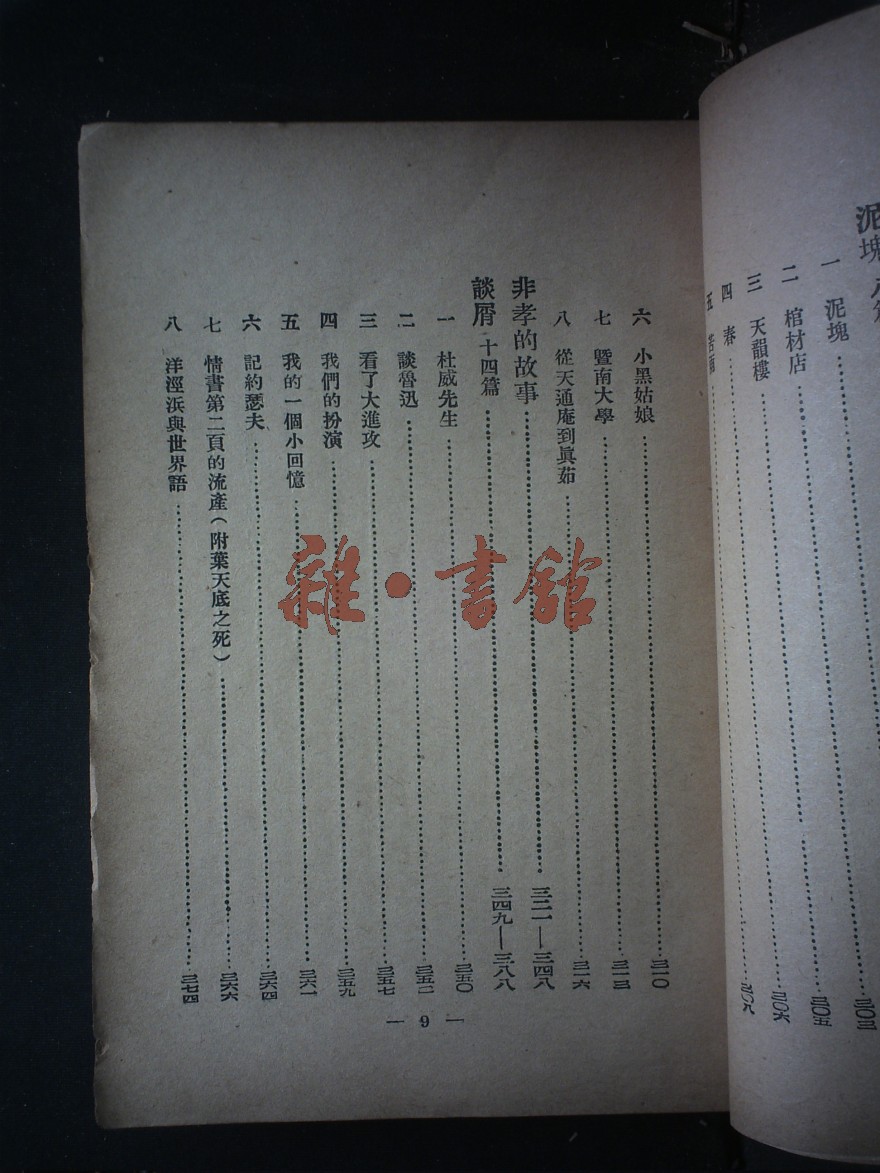 泥塊
一 泥塊……三〇三
二 棺材店……三〇五
三 天韻樓……三〇六
四 春……三〇八
五
六 小黑姑娘……三一〇
七 暨南大學……三一三
八 從天通庵到眞茹……三一六
非孝的故事……三二一—三四八
談屑 十四篇……三四九—三八八
一 杜威先生……三五〇
二 談魯迅……三五二
三 看了大進攻……三五七
四 我們的扮演……三五九
五 我的一個小回憶……三六一
六 記約瑟夫……三六四
七 情書第二頁的流產(附葉天底之死)……三六六
八 洋涇浜與世界語……三七四
— 9 —
雜·書舘